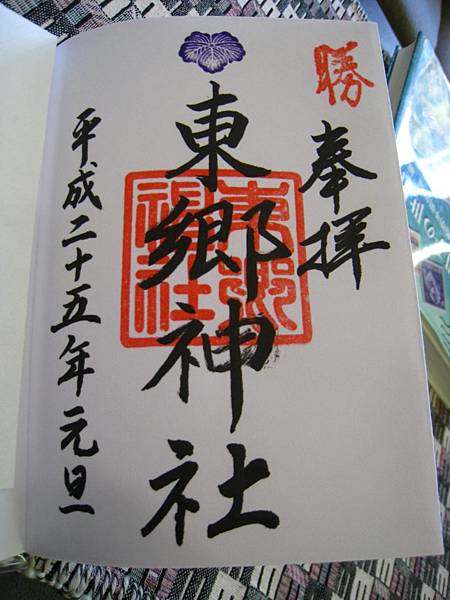 勝
奉拝
東郷神社
東郷神社
平成二十五年元旦